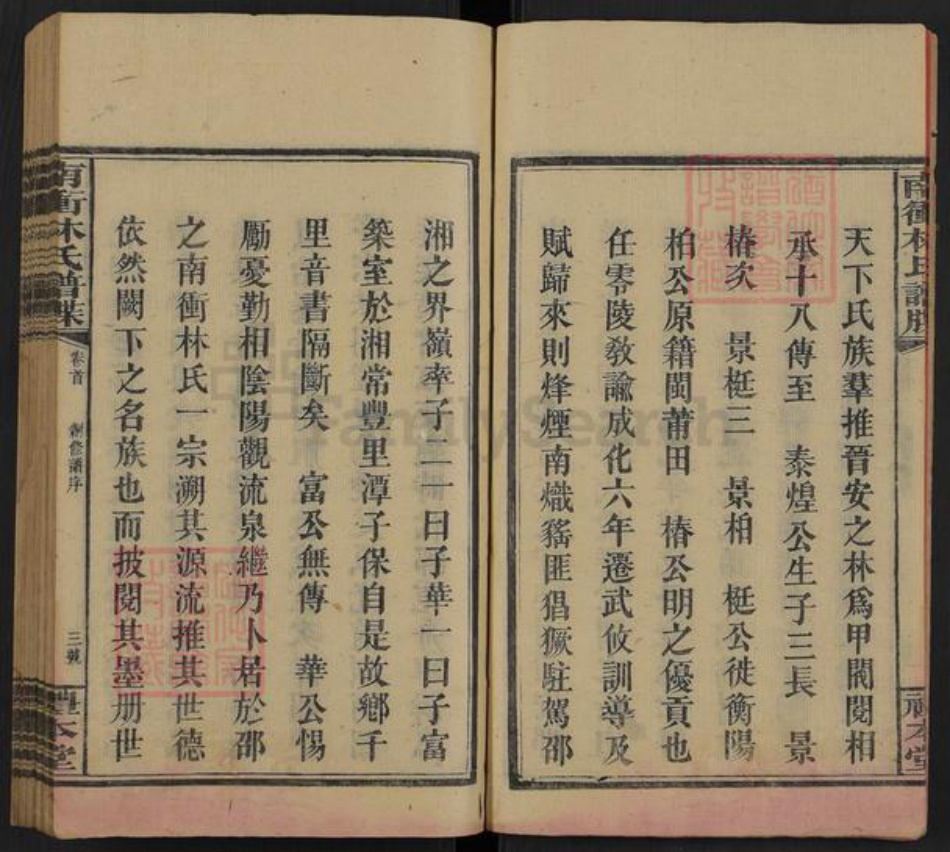 天下氏族羣推晉安之林爲甲閥閱相
承十八傳至 泰煌公生子三長 景
椿次 景梃三 景柏 梃公徙衡陽
柏公原籍閩莆田 椿公明之優貢也
任零陵敎諭成化六年遷武攸訓導及
賦歸來則烽煙南熾猺匪猖獗駐駕邵
湘之界嶺牽子二一曰子華一曰子富
築室於湘常豐里潭子保自是故鄉千
里音書隔斷矣 富公無傳 華公惕
勵憂勤相陰陽觀流泉繼乃卜居於邵
之南衝林氏一宗溯其源流推其世德
依然闕下之名族也而披閱其墨册世
南衝林氏譜牒
卷首
創修譜序
三號
本堂
FamilySearch